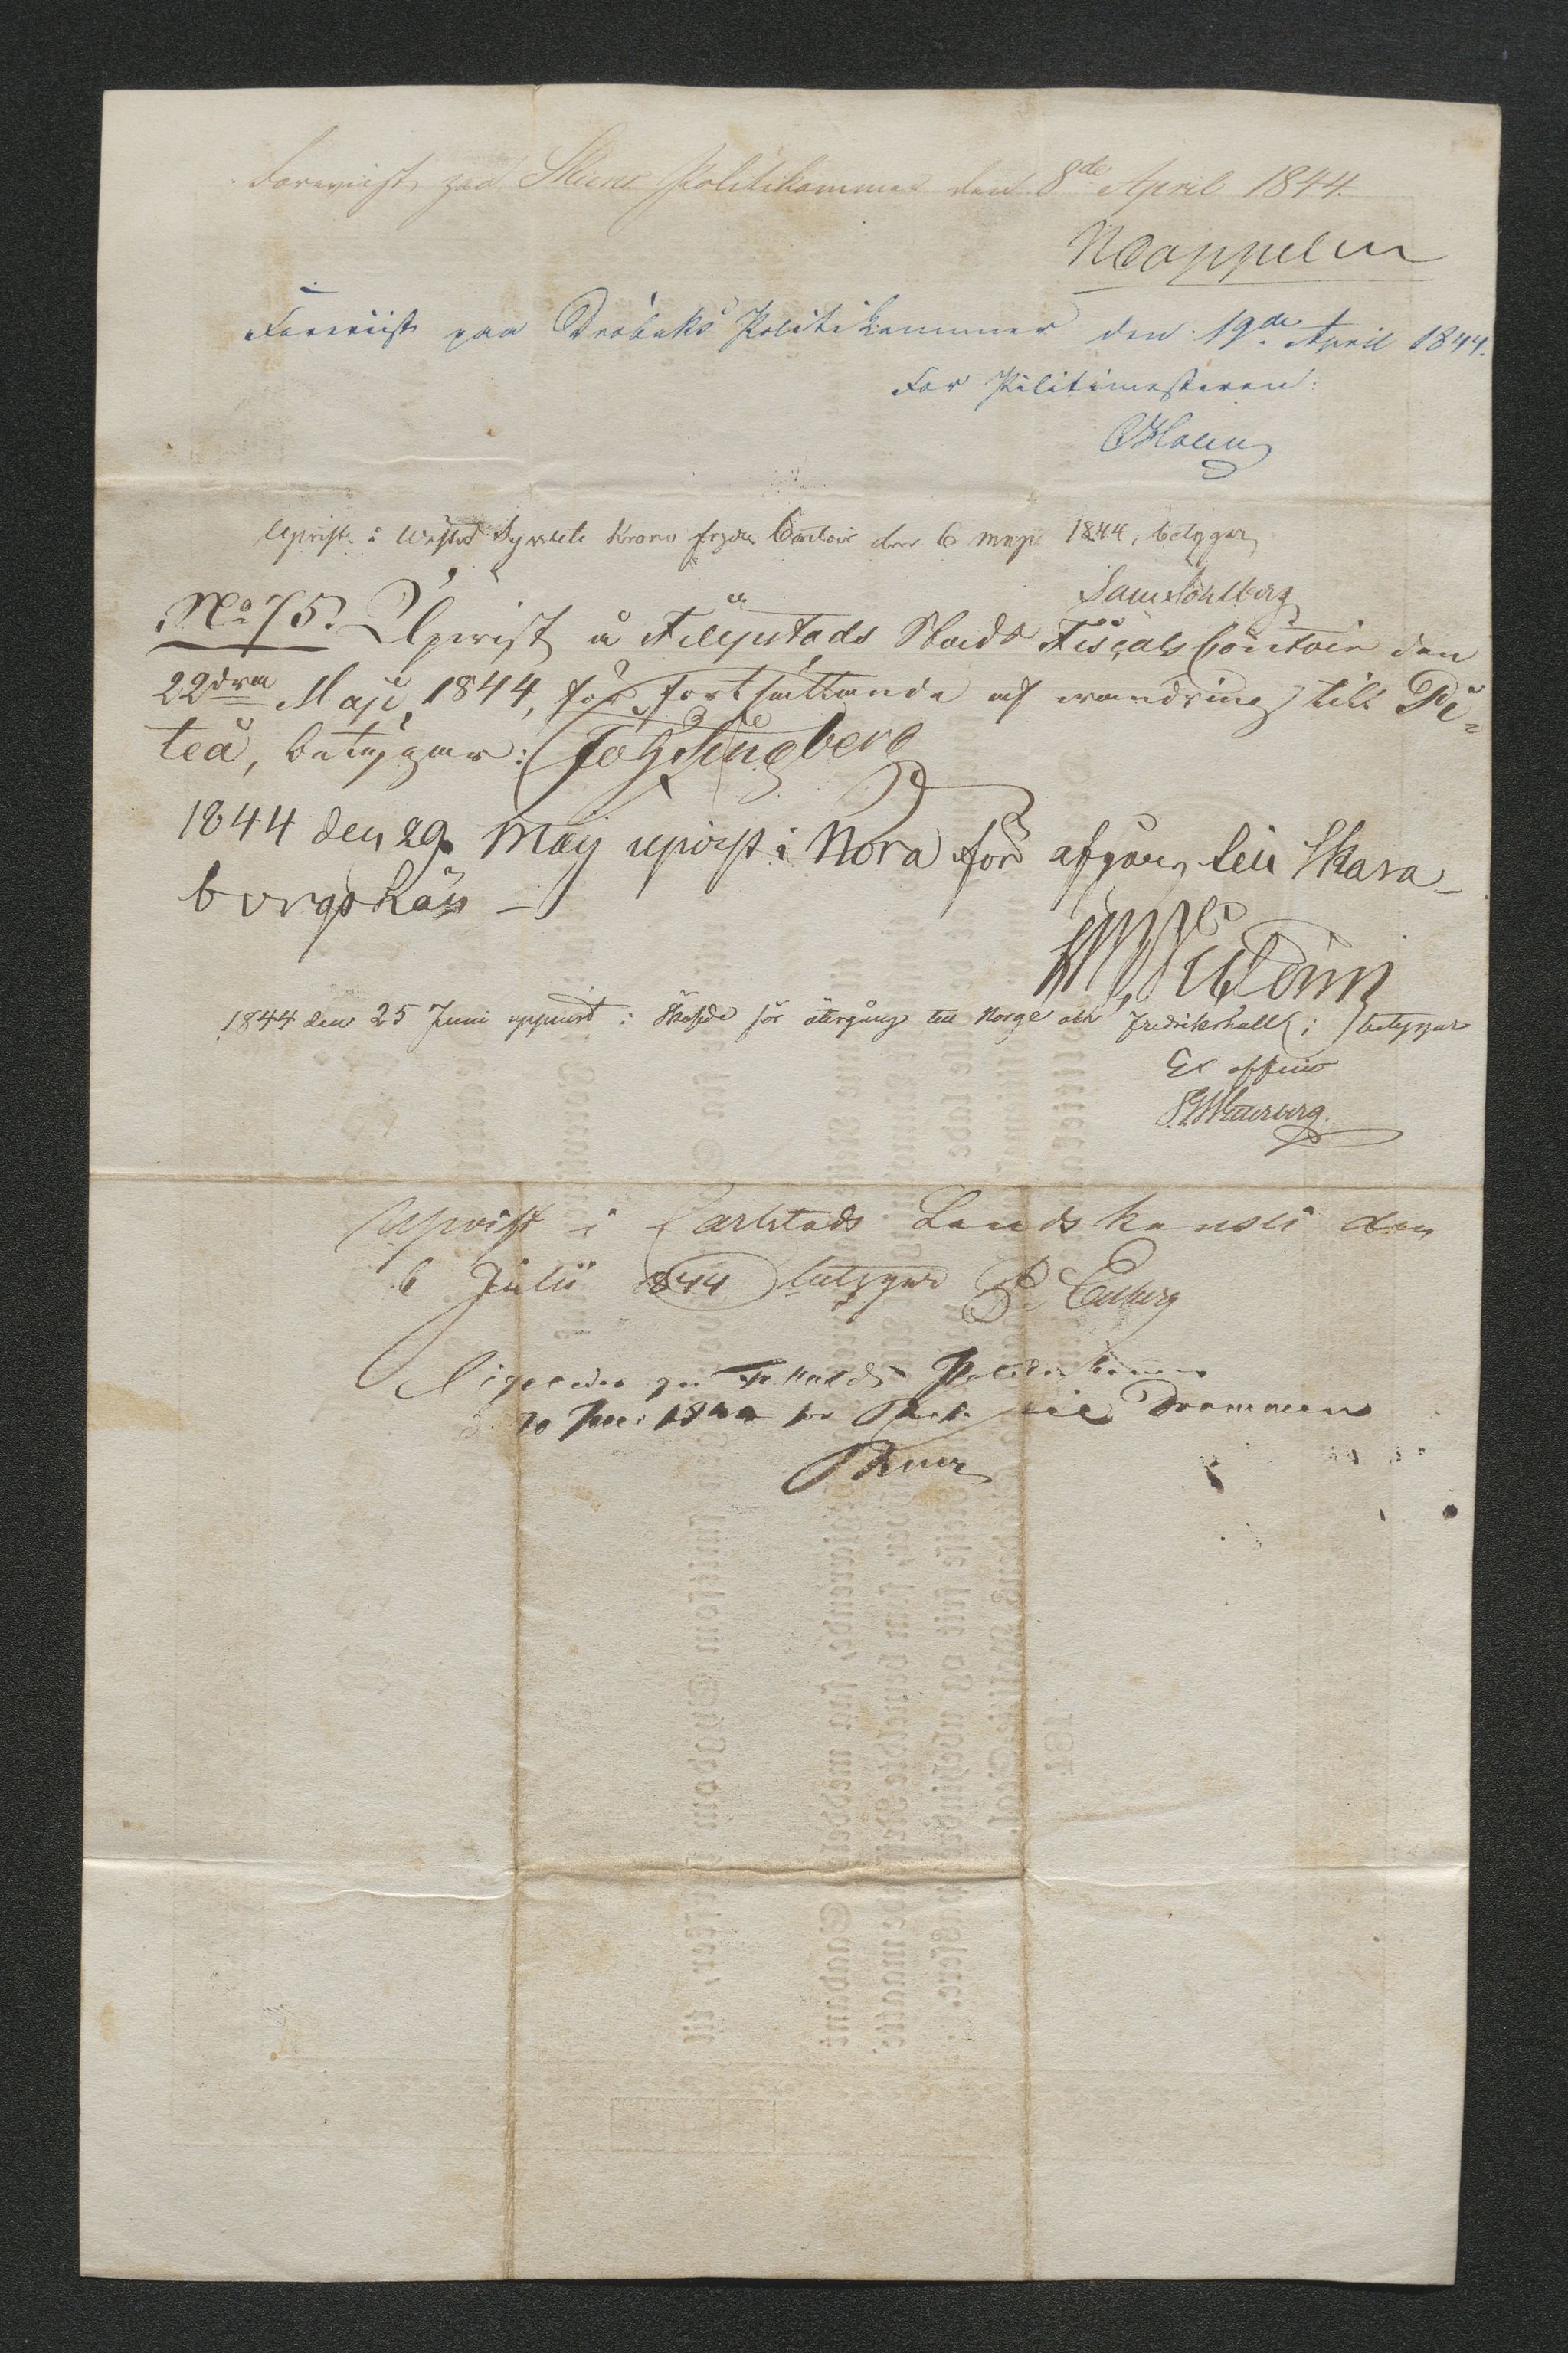 Foreviist paa Skiens Politikammer den 8de April 1844.
NCoppelen
Foreviist paa Drøbaks Politikammer den 19de April 1844.
For Politimesteren:
CHolm
Upvist i Westra Sysslets Krono fogde Contoir den 6 Maji 1844, betygar
Sam Dahlberg
No 75. Upvist å Filipstads Stads Fiscals Contoir den
22dra Maji 1844, för fortsättande af vandring till Pi=
teå, betygar:
1844 den 29. Maij upvist i Nora för afgång till Skara-
borgs Län —
1844 den 25 Juni uppvist i Sköfde för återgång till Norge och Fredrikshall; betygar
Ex officio
Upvist i Carlstads Landskansli den
6 Julii 1844 betygar
Ligeledes paa Fr.halds Politikammer
d. 20 1844 for til Drammen